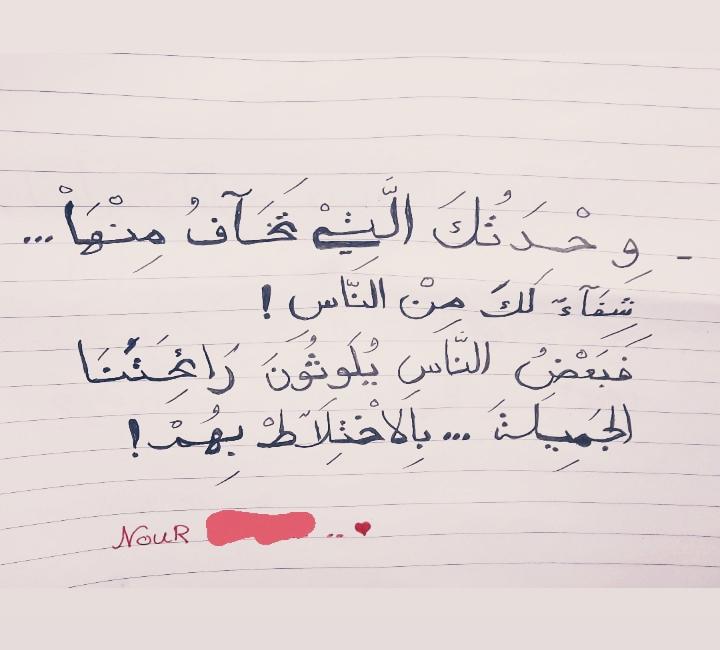 - وِحْدَتُكَ الَّتِيْ تَخَآفُ مِنْهَاْ...
شِفَآءٌ لَكَ مِنْ النَّاس !
فَبَعْضُ النَّاسِ يُلَوِثُونَ رَائِحَتُنَا
الجَمِيلةَ ... بِالاخْتِلَاَطْ بِهُمْ !
NOUR .. ♥